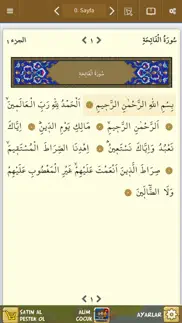 0. Sayfa
سُورَةُ الْفَاتِحَةِ
﴿ ١ ﴾
الجزء ١
سُورَةُ الْفَاتِحَةِ
بِسْمِ اللهِ الرَّحْمٰنِ الرَّحِيمِ ۞ اَلْحَمْدُ لِلّٰهِ رَبِّ الْعَالَمِينَ
۞ اَلرَّحْمٰنِ الرَّحِيمِ ۞ مَالِكِ يَوْمِ الدِّينِ ۞ اِيَّاكَ
نَعْبُدُ وَاِيَّاكَ نَسْتَعِينُ ۞ اِهْدِنَا الصِّرَاطَ الْمُسْتَقِيمَ
۞ صِرَاطَ الَّذِينَ اَنْعَمْتَ عَلَيْهِمْ غَيْرِ الْمَغْضُوبِ عَلَيْهِمْ
وَلَا الضَّالِّينَ ۞
﴿ ١ ﴾
SATIN AL
DESTEK OL
ALIM
ÇOCUK
AYARLAR